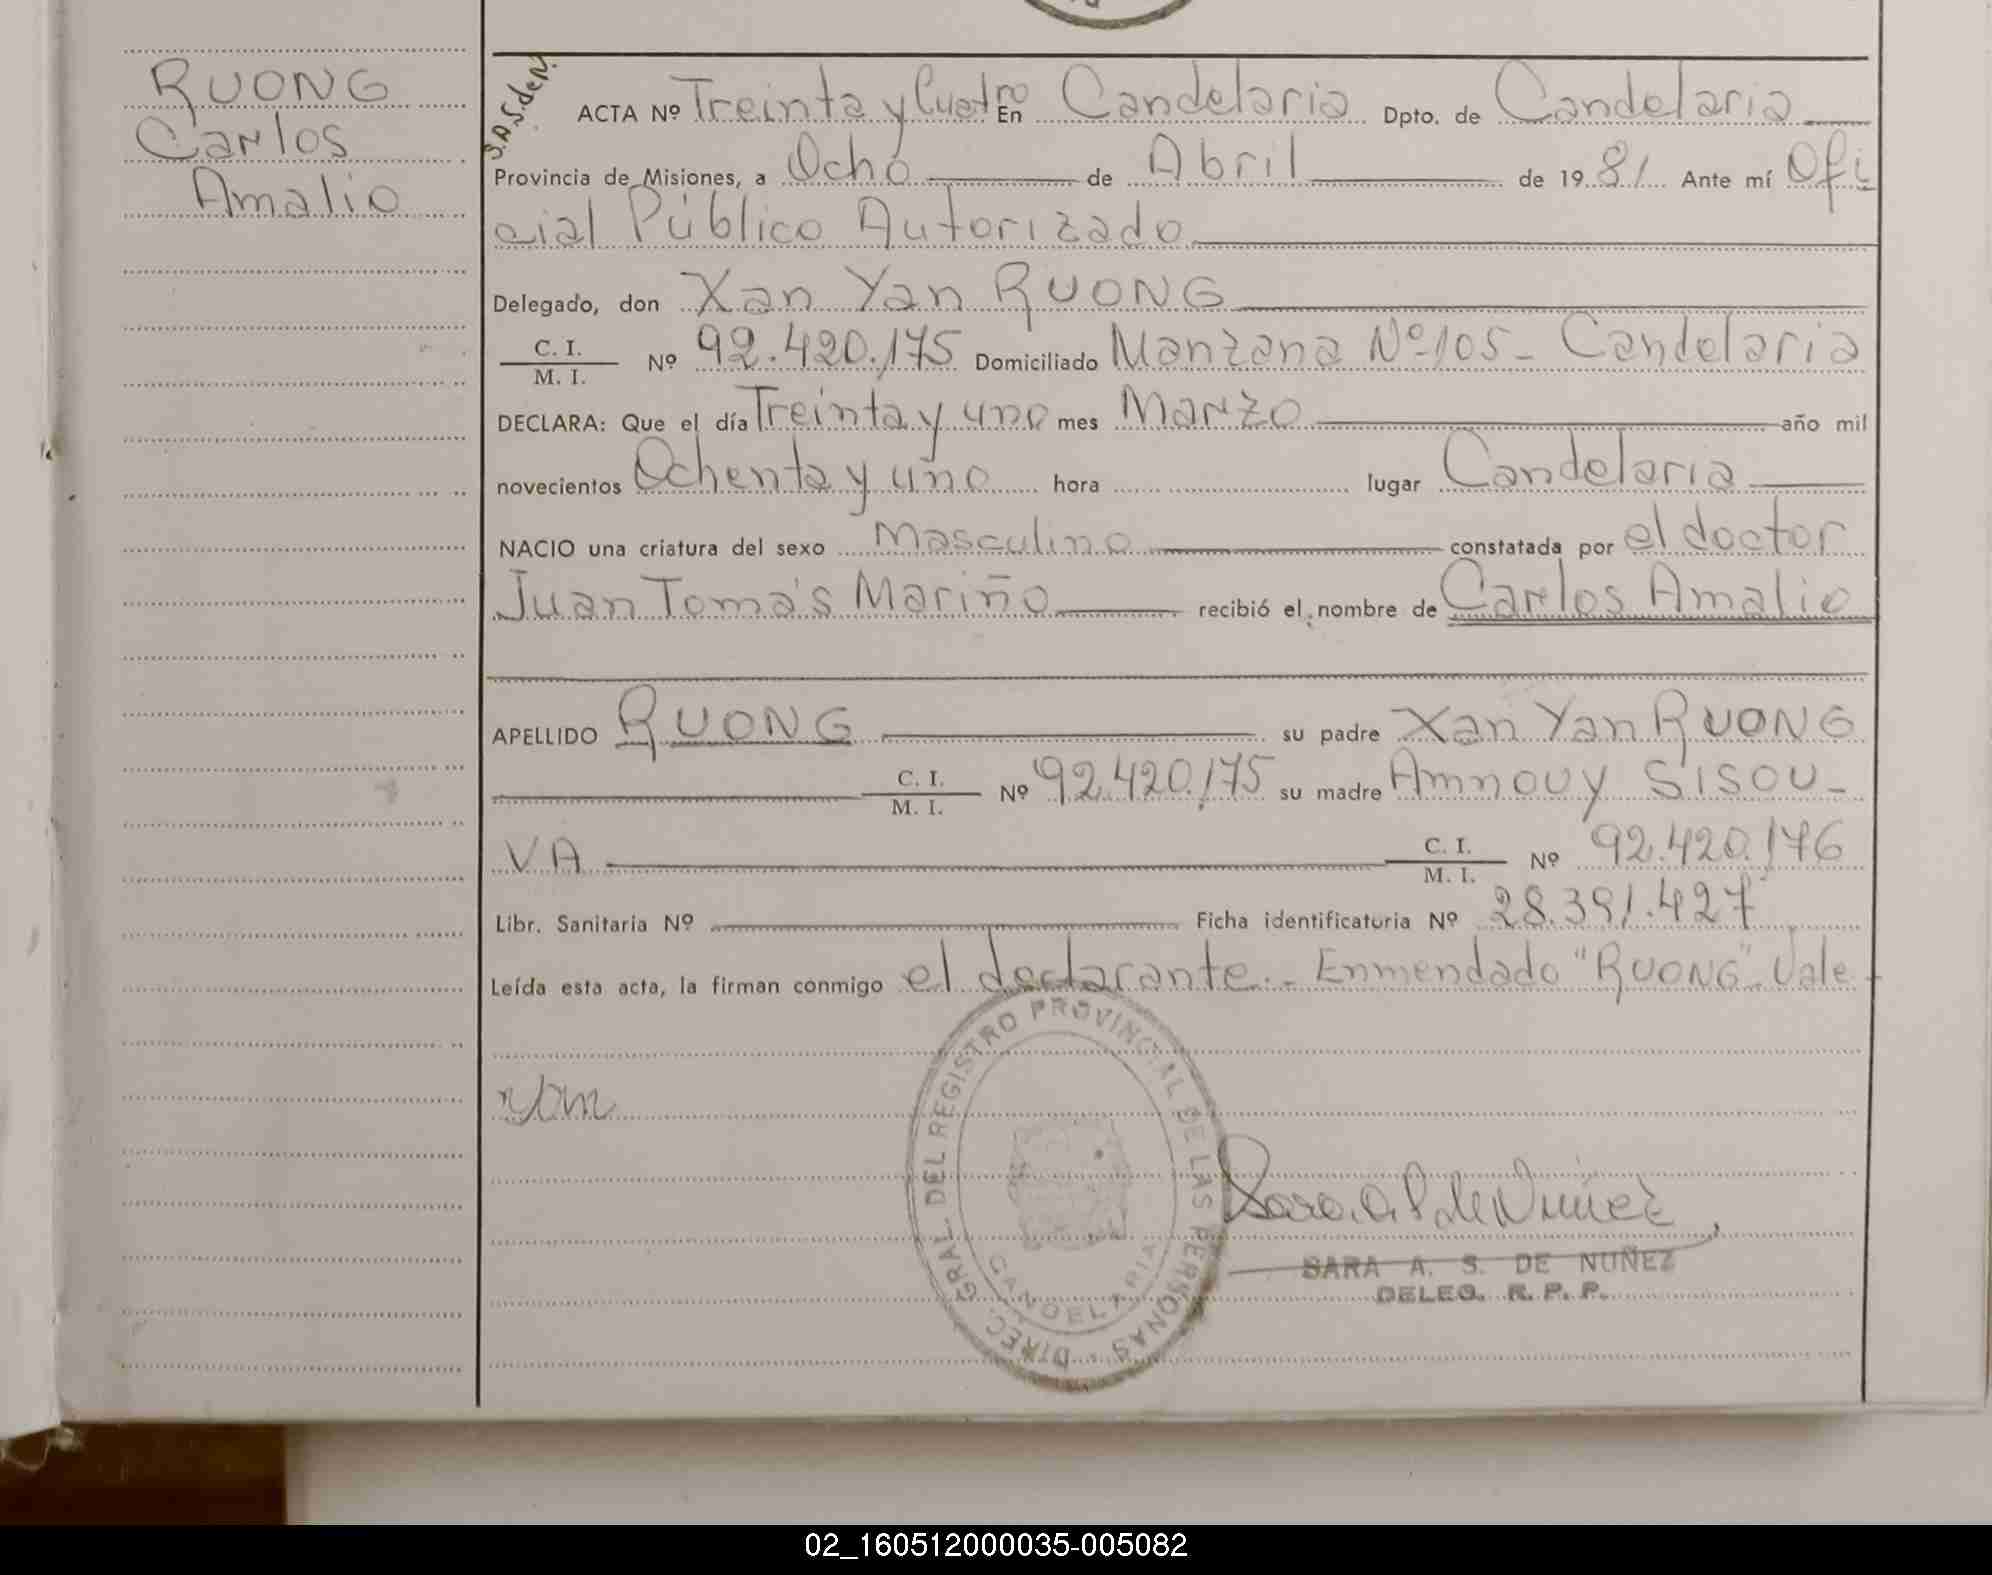 RUONG
Carlos
Amalio
S.A.S.deN.
ACTA Nº Treinta y Cuatro En Candelaria Dpto. de Candelaria
Provincia de Misiones, a Ocho de Abril de 19 81 Ante mí Ofi
cial Público Autorizado
Delegado, don Xan Yan RUONG
C. I.
M. I. Nº 92.420.175 Domiciliado Manzana Nº 105 - Candelaria
DECLARA: Que el día Treinta y uno mes Marzo año mil
novecientos Ochenta y uno hora lugar Candelaria
NACIO una criatura del sexo Masculino constatada por el doctor
Juan Tomás Mariño recibió el nombre de Carlos Amalio
APELLIDO RUONG su padre Xan Yan RUONG
C. I.
M. I. Nº 92.420.175 su madre Amnouy SISOU-
VA C. I.
M. I. Nº 92.420.176
Libr. Sanitaria Nº Ficha identificatoria Nº 28.391.427
Leída esta acta, la firman conmigo el declarante.- Enmendado "RUONG" Vale
DIREC. GRAL. DEL REGISTRO PROVINCIAL DE LAS PERSONAS
CANDELARIA
Sara A. S. de Nuñez
SARA A. S. DE NUÑEZ
DELEG. R. P. P.
02_160512000035-005082